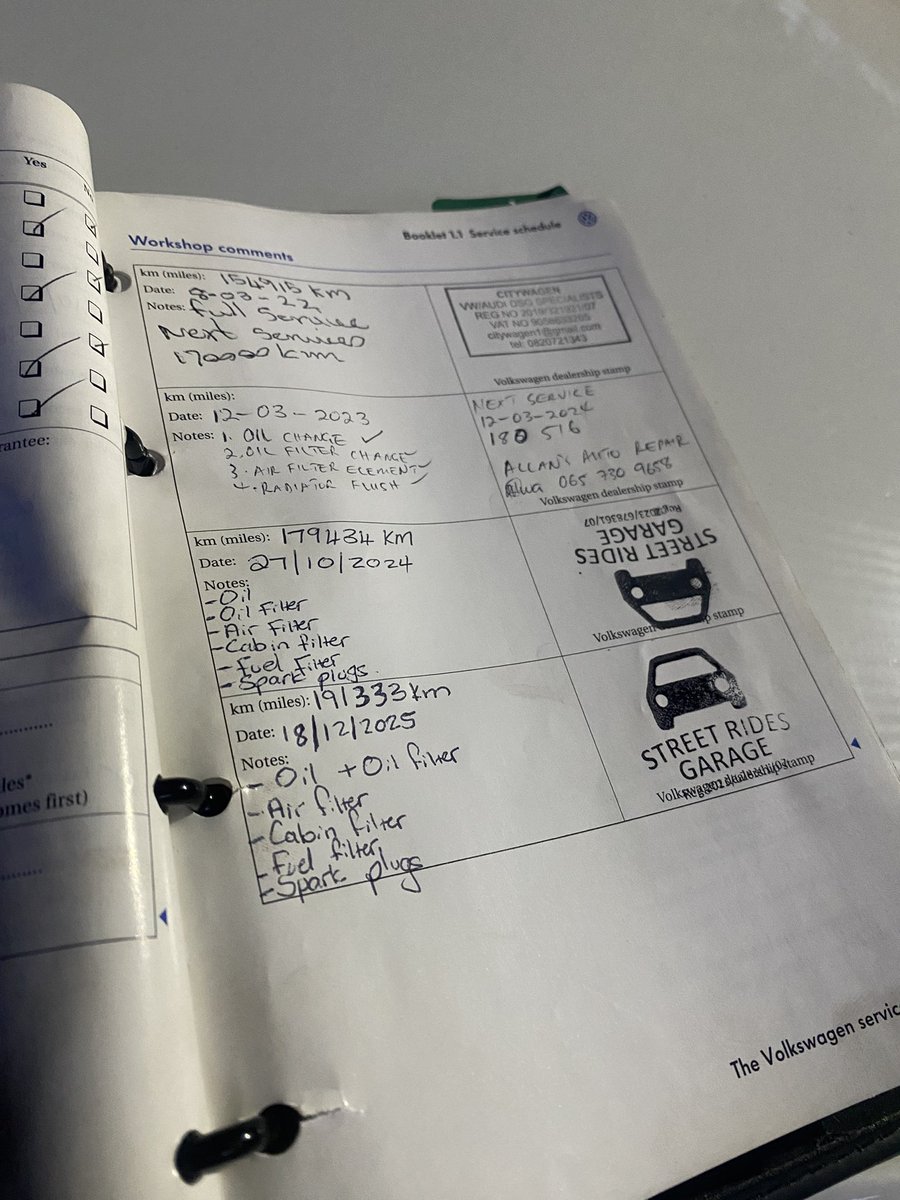 Yes
Workshop comments
Booklet 1.1 Service schedule
km (miles): 154915 km
Date: 8-03-22
Notes: full Service
Next Services
170000 km
CITYWAGEN
VW/AUDI DSG SPECIALISTS
REG NO 2019/321921/07
VAT NO
citywagen1@gmail.com
tel: 0820721343
Volkswagen dealership stamp
km (miles):
Date: 12-03-2023
Notes: 1. OIL CHANGE ✓
2. OIL FILTER CHANGE ✓
3. AIR FILTER ELEMENT ✓
4. RADIATOR FLUSH ✓
NEXT SERVICE
12-03-2024
180 516
ALLAN'S AUTO REPAIR
065 730 9658
Volkswagen dealership stamp
km (miles): 179434 KM
Date: 27/10/2024
Notes:
-Oil
-Oil Filter
-Air Filter
-Cabin filter
-Fuel Filter
-Spark plugs
STREET RIDES
GARAGE
Reg:2023/678361/07
Volkswagen dealership stamp
km (miles): 191333 km
Date: 18/12/2025
Notes:
- Oil + Oil filter
- Air filter
- Cabin filter
- Fuel filter
- Spark plugs
STREET RIDES
GARAGE
Volkswagen dealership stamp
rantee:
les*
omes first)
The Volkswagen servic